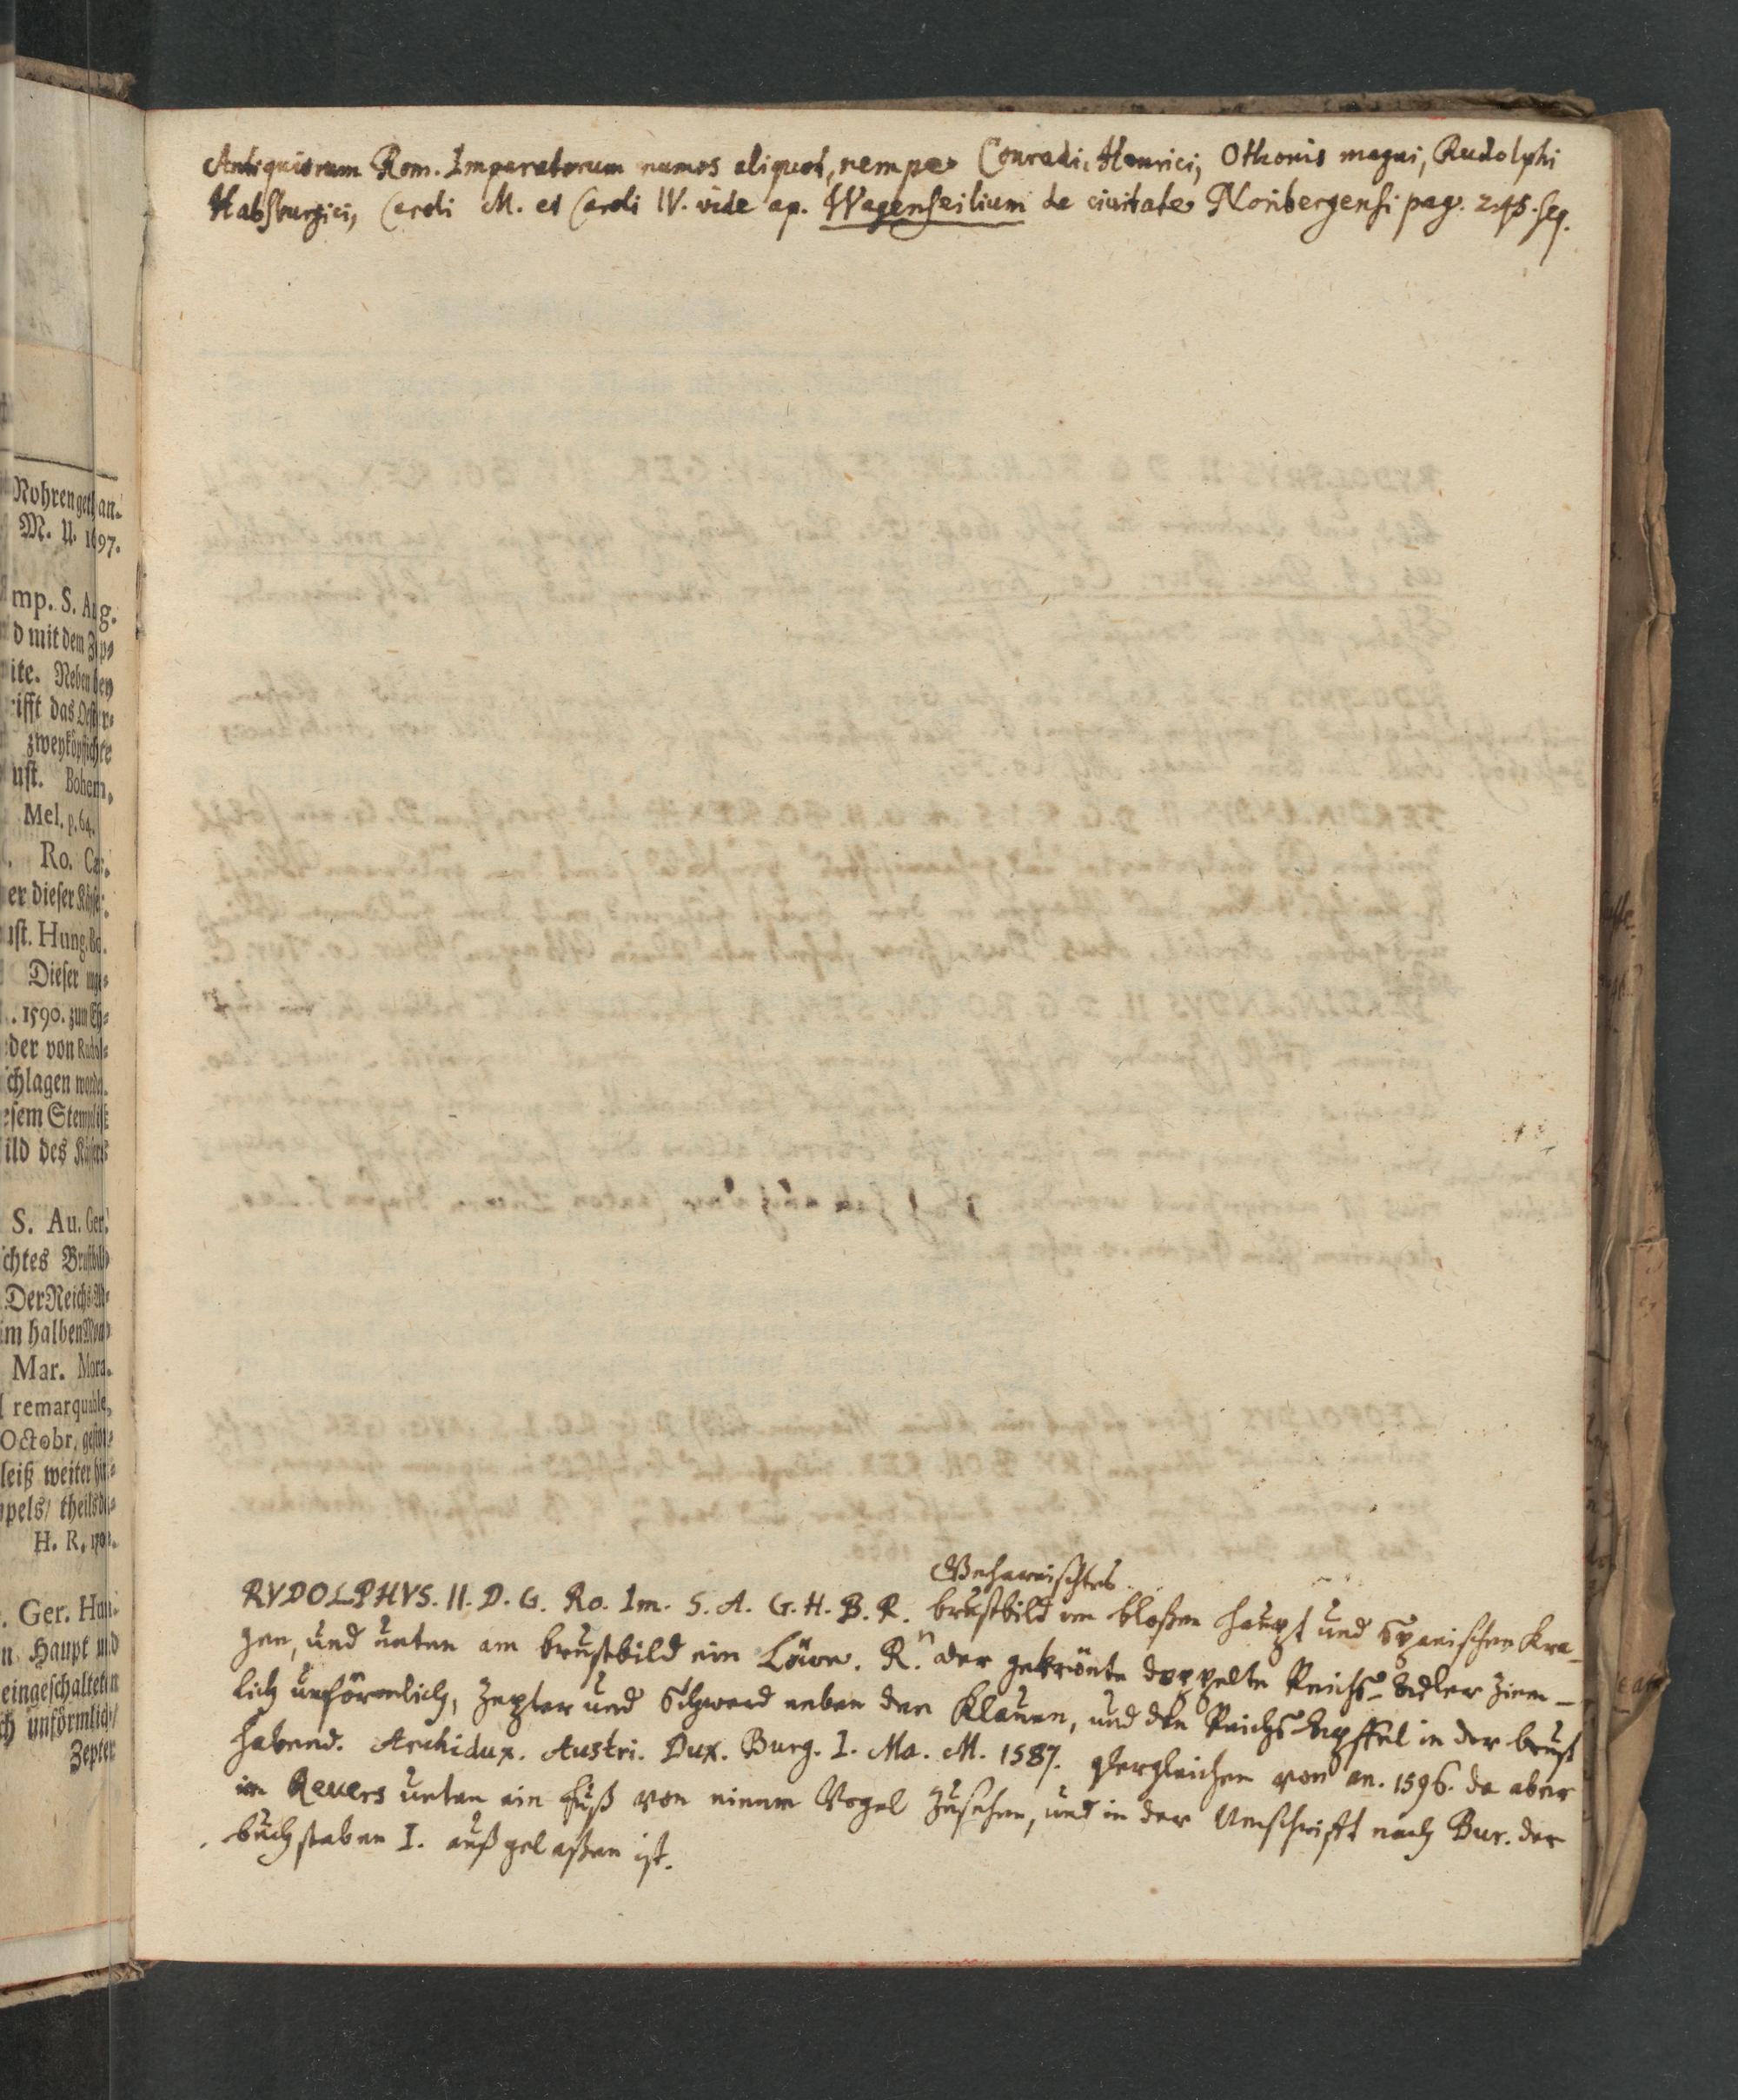 Nohren geth an-
M. U. 1697.
mp. S. Aug.
d mit dem Zep-
ite. Neben bey
rifft das Oester-
zweyköpfichte
ust. Bohem.
Mel. p. 64.
. Ro. Cæ.
er dieser Käyse
ust. Hung. Bo.
Dieser
. 1590. zun
der von Rudol-
chlagen worden.
esem Stempel ist
ild des Käysers
S. Au. Ger.
chtes Brustbild
Der Reichs-Ad-
im halben Mon
Mar. Mora.
l remarquable,
Octobr.
leiß weiter
pels/ theils
H. R. 170
. Ger. Hun-
n Haupt und
eingeschalteten
ch unförmlich/
Zepter
Antiquiorum Rom. Imperatorum numos aliquot, nempe Conradi, Henrici, Othonis magni, Rudolphi
Habsburgici, Caroli M. et Caroli IV. vide ap. Wagenseilium de civitate Noribergensi pag. 245. seq.
Geharnischtes
RVDOLPHVS. II. D. G. Ro. Im. S. A. G. H. B. R. brustbild im bloßen Haupt und Spanischen Kra-
gen, und unten am brustbild ein Löwe. R. der gekrönte doppelte Reichs-Adler ziem-
lich unförmlich, Zepter und Schwerd neben den Klauen, und den Reichs-Apffel in der brust
habend. Archidux. Austri. Dux. Burg. I. Ma. M. 1587. Dergleichen von an. 1596. da aber
im Revers unten ein Fuß von einem Vogel zusehen, und in der Umschrifft nach Bur. der
buchstaben I. außgelaßen ist.